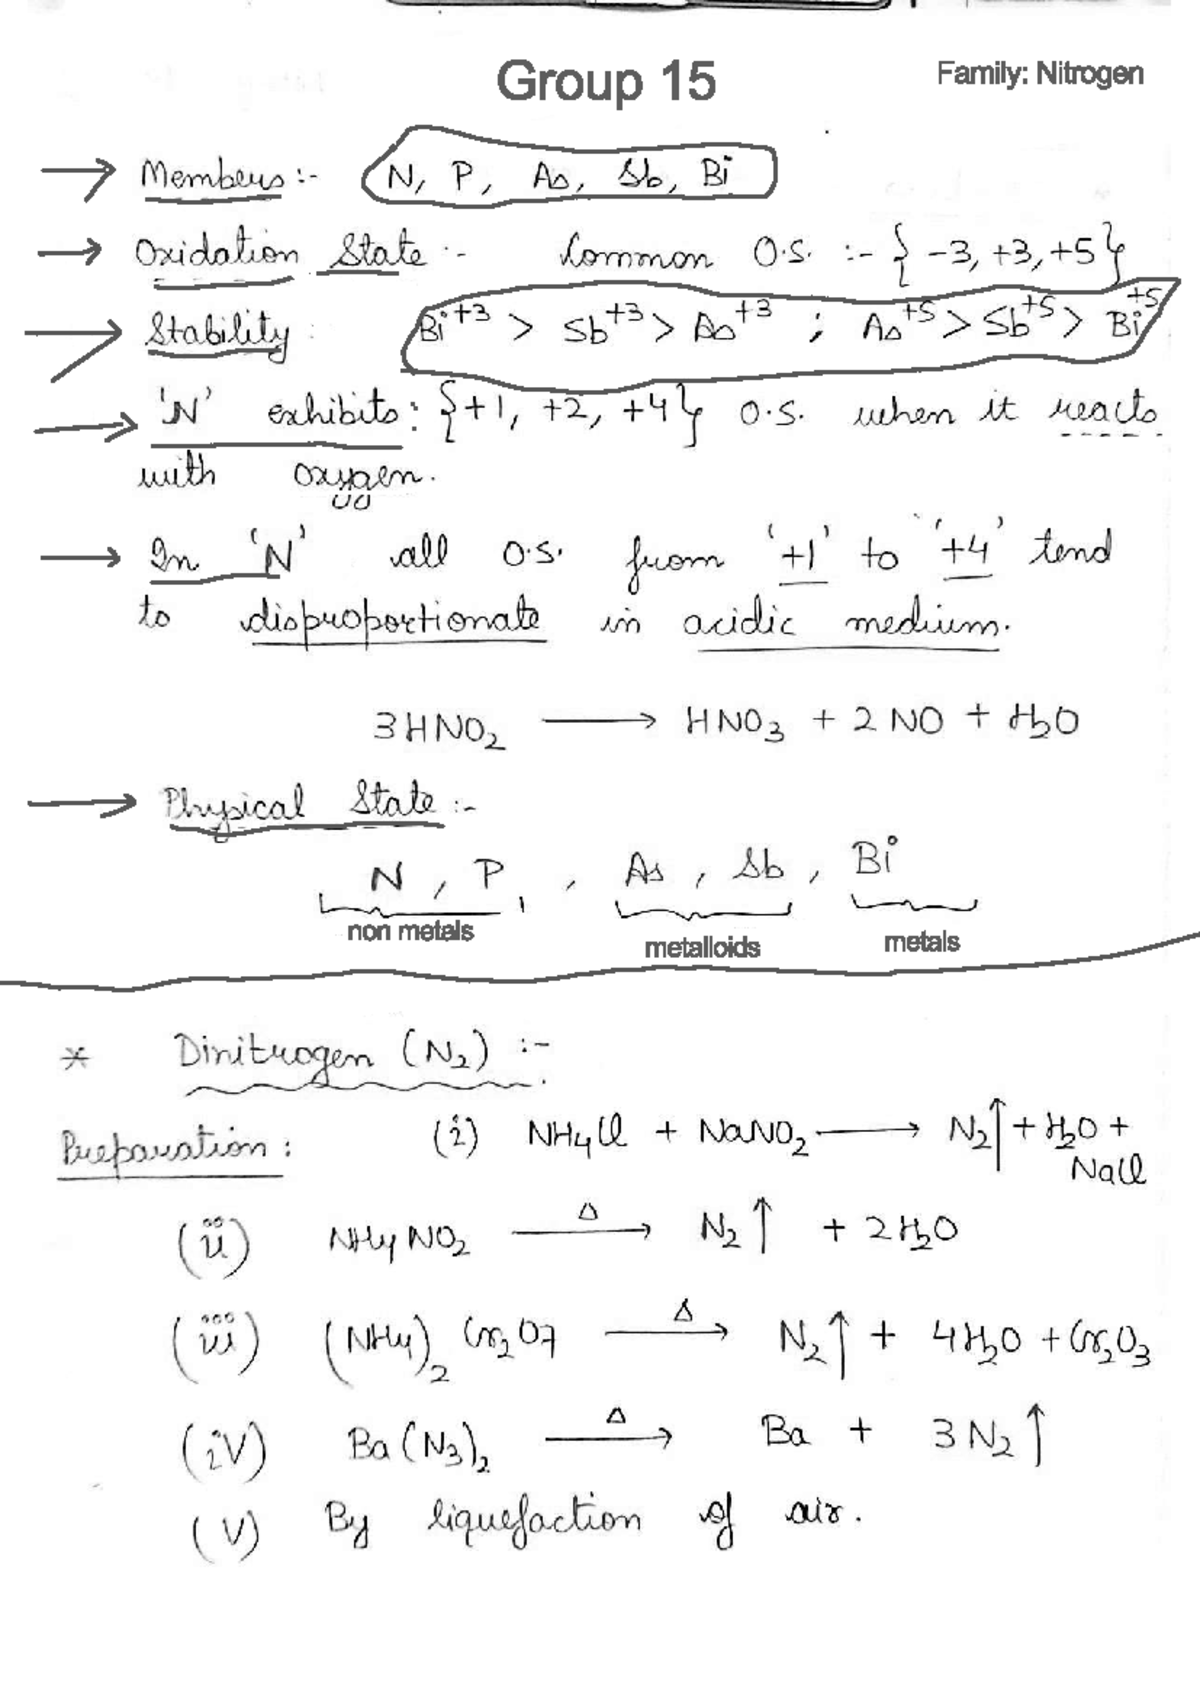 Group 15
Family: Nitrogen
→ Members :- N, P, As, Sb, Bi
→ Oxidation State :- Common O.S. :- {-3, +3, +5}
→ Stability : Bi⁺³ > Sb⁺³ > As⁺³ ; As⁺⁵ > Sb⁺⁵ > Bi⁺⁵
→ 'N' exhibits : {+1, +2, +4} O.S. when it reacts
with oxygen.
→ In 'N' all O.S. from '+1' to '+4' tend
to disproportionate in acidic medium.
3HNO₂ → HNO₃ + 2NO + H₂O
→ Physical State :-
N, P, , As, Sb, Bi
non metals metalloids metals
* Dinitrogen (N₂) :-
Preparation : (i) NH₄Cl + NaNO₂ → N₂↑ + H₂O +
NaCl
(ii) NH₄NO₂ —Δ→ N₂↑ + 2H₂O
(iii) (NH₄)₂Cr₂O₇ —Δ→ N₂↑ + 4H₂O + Cr₂O₃
(iv) Ba(N₃)₂ —Δ→ Ba + 3N₂↑
(V) By liquefaction of air.